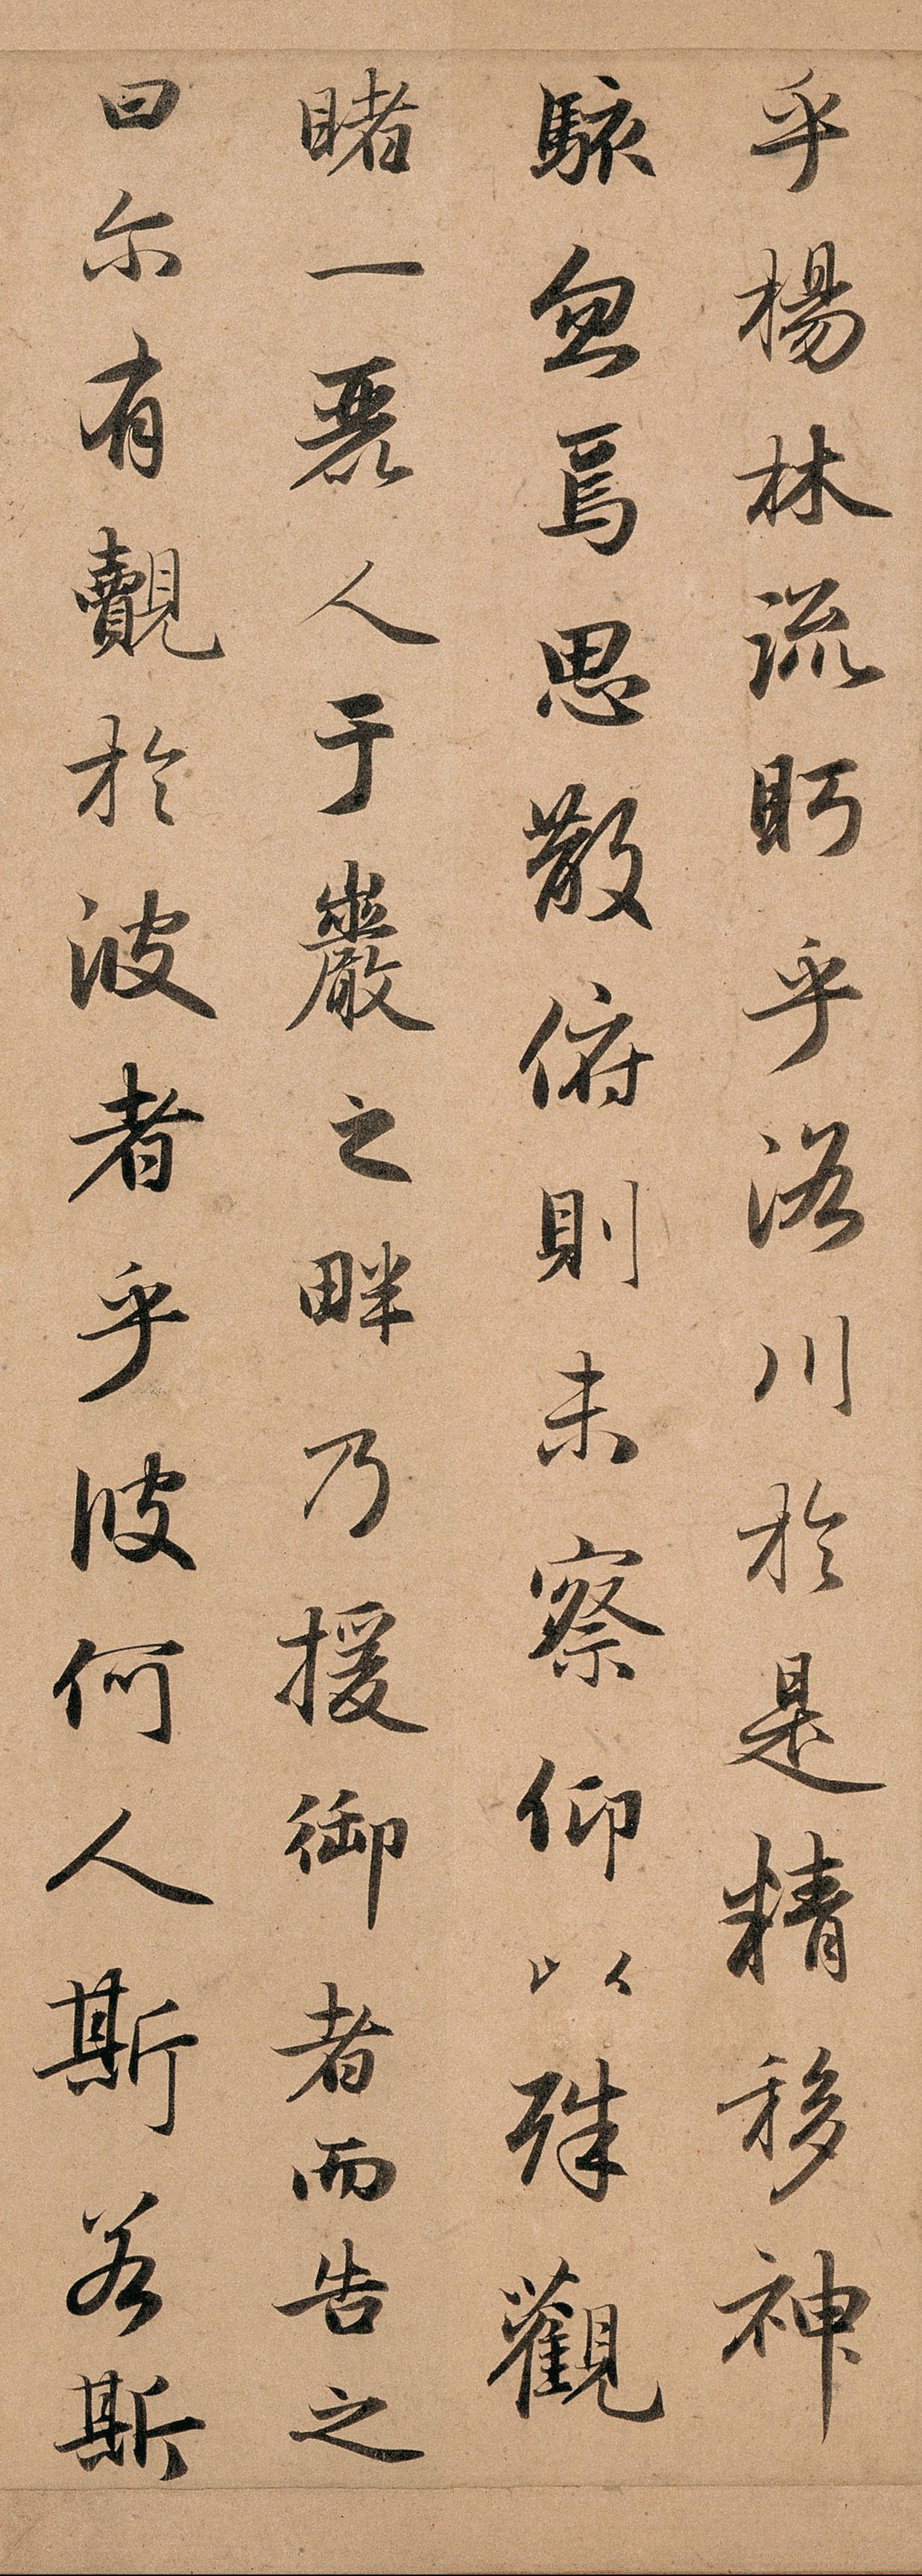 乎楊林流眄乎洛川於是精移神
駭忽焉思散俯則未察仰以殊觀
睹一麗人于巖之畔乃援御者而告之
曰尔有覿於彼者乎彼何人斯若斯